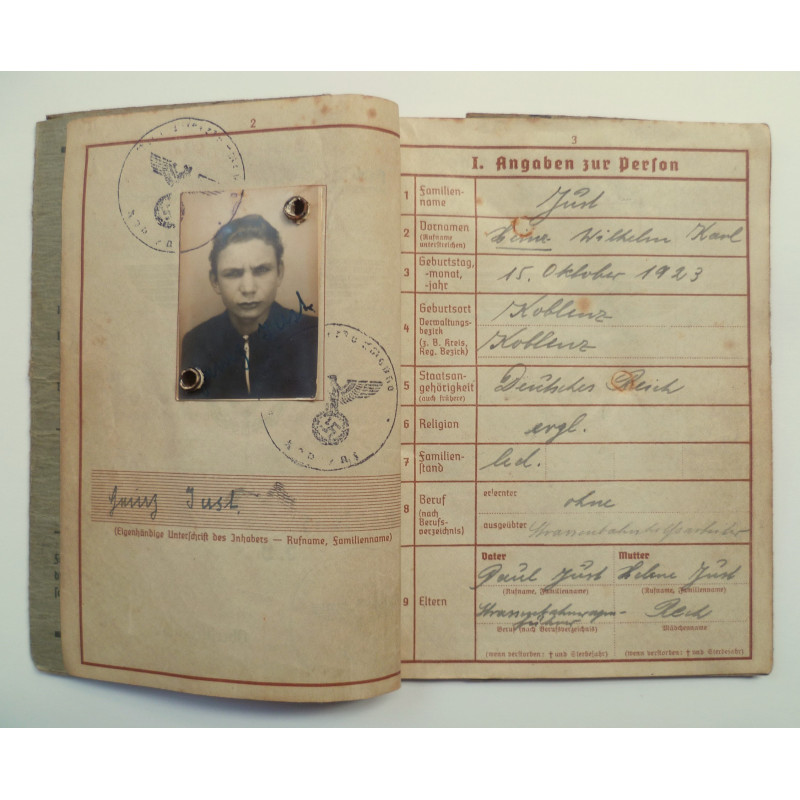 2
Heinz Just
(Eigenhändige Unterschrift des Inhabers — Rufname, Familienname)
3
I. Angaben zur Person
1 Familien-
name
Just
2 Vornamen
(Rufname
unterstreichen)
Heinz Wilhelm Karl
3 Geburtstag,
-monat,
-jahr
15. Oktober 1923
4 Geburtsort
Verwaltungs-
bezirk
(z. B. Kreis,
Reg. Bezirk)
Koblenz
Koblenz
5 Staatsan-
gehörigkeit
(auch frühere)
Deutsches Reich
6 Religion
evgl.
7 Familien-
stand
led.
8 Beruf
(nach
Berufs-
verzeichnis)
erlernter
ohne
ausgeübter
Strassenbahnhilfsarbeiter
9 Eltern
Vater
Paul Just
(Rufname, Familienname)
Strassenbahnwagen-
führer
Beruf (nach Berufsverzeichnis)
(wenn verstorben: † und Sterbejahr)
Mutter
Helene Just
(Rufname, Familienname)
Mädchenname
(wenn verstorben: † und Sterbejahr)